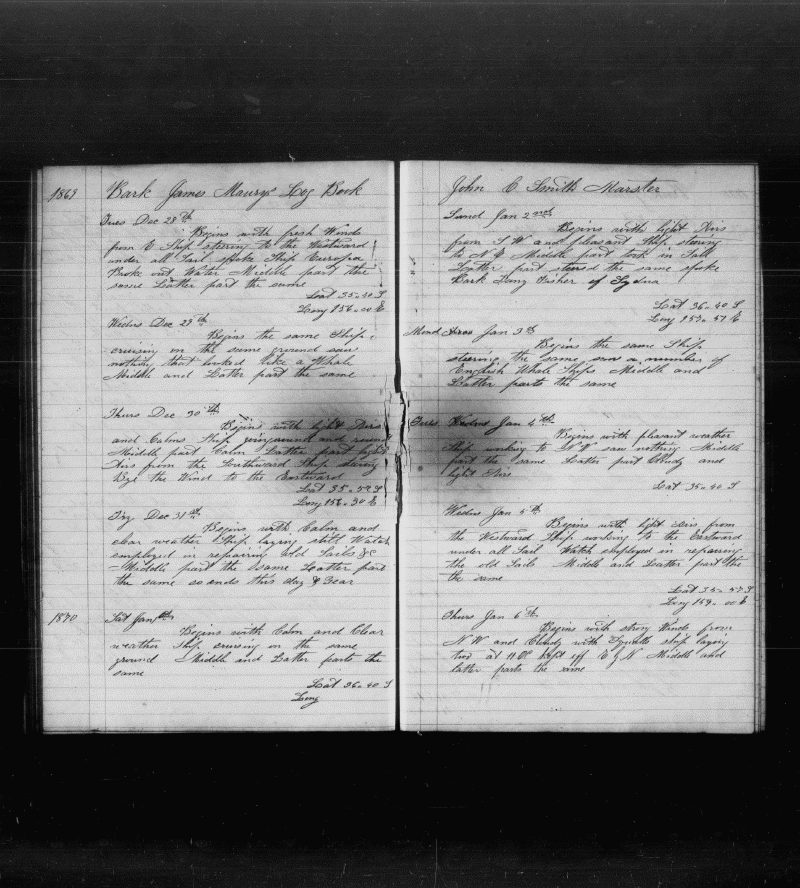 1869 Bark James Maurys Log Book
Tues Dec 28th
Begins with fresh Winds
from E Ship steering to the Westward
under all Sail spoke Ship Europa
Broke out Water Middle part the
same Latter part the same
Lat 35-40 S
Long 156-00 E
Wedns Dec 29th
Begins the same Ship
cruising on the same ground saw
nothing that looked like a Whale
Middle and Latter part the same
Thurs Dec 30th
Begins with light Airs
and Calms Ship going round and round
Middle part Calm Latter part light
Airs from the Southward Ship steering
Bye the Wind to the Eastward
Lat 35-52 S
Long 156-30 E
Fry Dec 31st
Begins with Calm and
clear weather Ship laying still Watch
employed in repairing old Sails &c
Middle part the same Leatter part
the same so ends this day & Year
1870 Sat Jan 1st
Begins with Calm and Clear
weather Ship cruising on the same
ground Middle and Latter parts the
same
Lat 36-40 S
Long
John C Smith Marster
Sund Jan 2nd
Begins with light Airs
from S.W and pleasant Ship steering
to N.E Middle part took in Sail
Leatter part steered the same spoke
Bark of Sydna
Lat 36-40 S
Long 153-57 E
Mond Jan 3th
Begins the same Ship
steering the same saw a number of
English Whale Ships Middle and
Latter parts the same
Tues Wedns Jan 4th
Begins with pleasant weather
Ship working to N.W saw nothing Middle
part the same Leatter part Cloudy and
light Airs
Lat 35-40 S
Wedns Jan 5th
Begins with light Airs from
the Westward Ship working to the Eastward
under all Sail Watch employed in repairing
the old Sails Middle and Leatter part the
the same
Lat 35-57 S
Long 159-00 E
Thurs Jan 6th
Begins with strong Winds from
N.W and Cloudy with ship laying
two at 11 kept off E N Middle and
latter parts the same